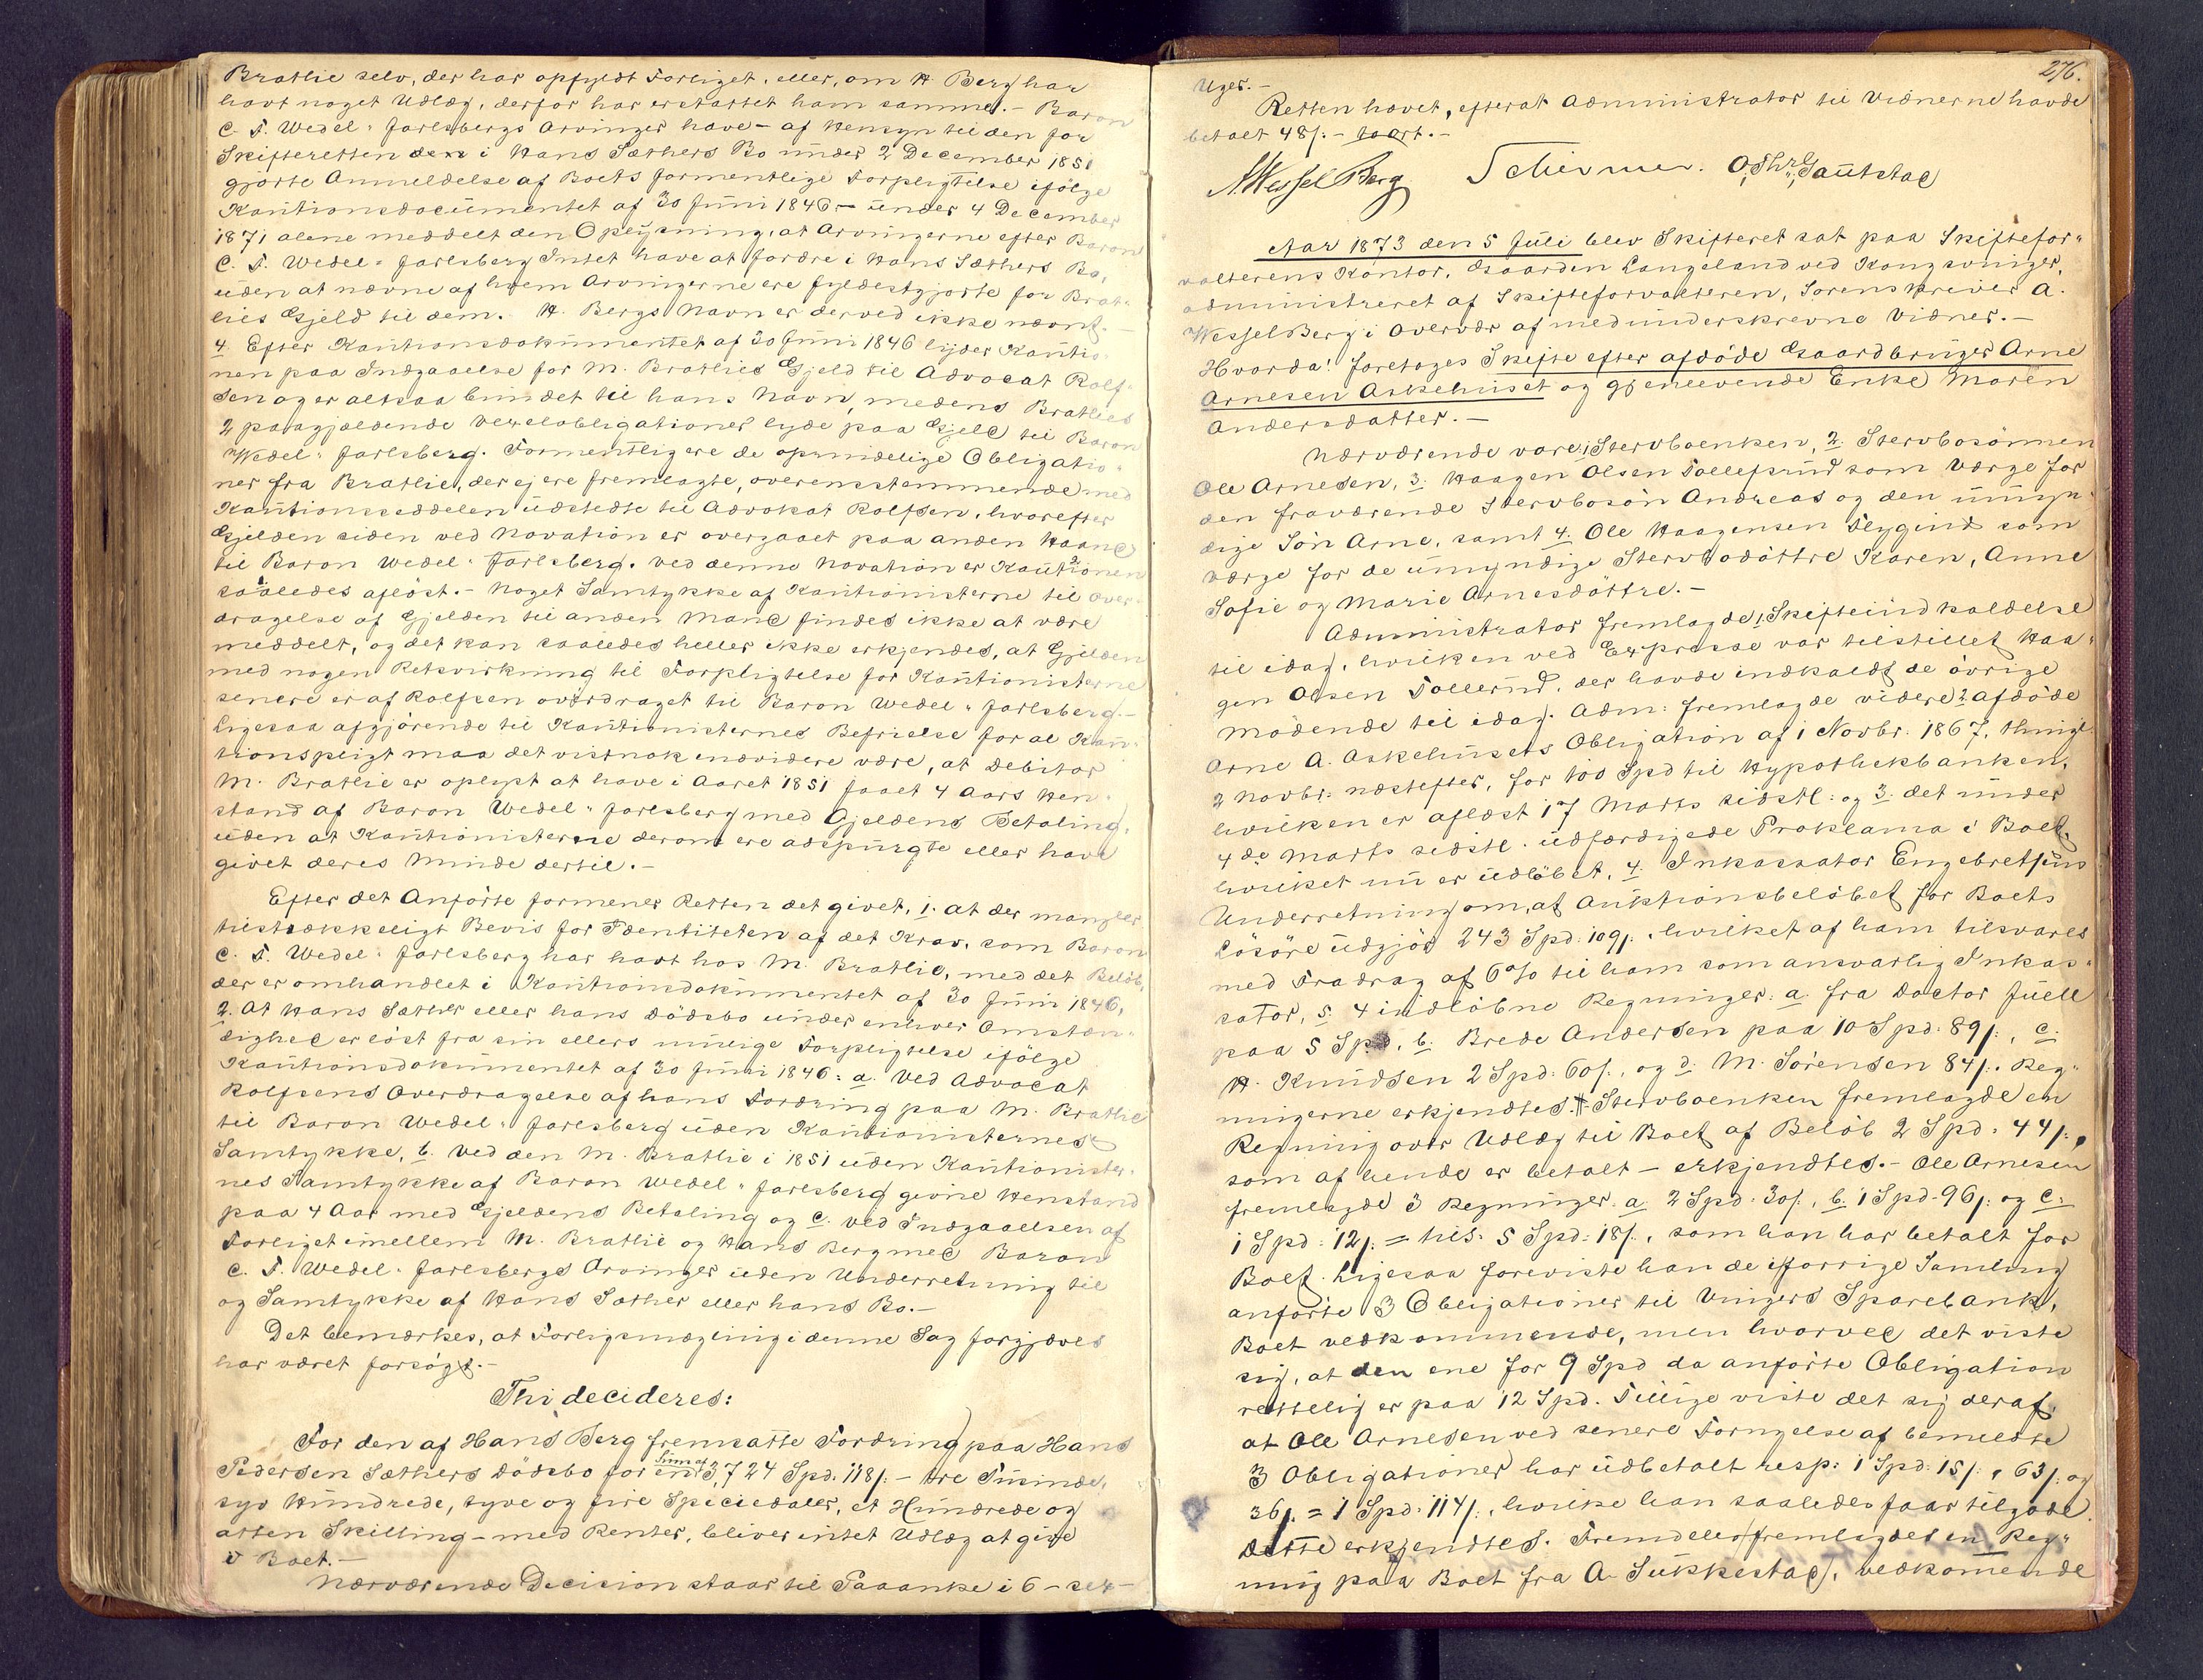 Bratlie selv, der har opfyldt Forliget, eller, om H. Berg har
havt noget Udlæg, derfor har erstattet ham samme. - Baron
C. F. Wedel-Jarlsbergs Arvinger have - af Hensyn til den for
Skifteretten den i Hans Sæthers Bo under 2 December 1851
gjorte Anmeldelse af Boets formentlige Forpligtelse ifölge
Kautionsdocumentet af 30 Juni 1846 - under 4 December
1871 alene meddelt den Oplysning, at Arvingerne efter Baron
C. F. Wedel-Jarlsberg Intet have at fordre i Hans Sæthers Bo,
uden at nævne af hvem Arvingerne ere fyldestgjorte for Brat-
lies Gjeld til dem. H. Bergs Navn er derved ikke nævnt. -
4. Efter Kautionsdokumentet af 30 Juni 1846 lyder Kautio-
nen paa Indgaaelse for M. Bratlies Gjeld til Advocat Rolf-
sen og er altsaa bundet til hans Navn, medens Bratlies
2 paagjældende Vexelobligationer lyde paa Gjeld til Baron
Wedel-Jarlsberg. Formentlig ere de oprindelige Obligatio-
ner fra Bratlie, der ej ere fremlagte, overensstemmende med
Kautionsseddelen udstedte til Advokat Rolfsen, hvorefter
Gjelden siden ved Novation er overgaaet paa anden Haand
til Baron Wedel-Jarlsberg. Ved denne Novation er Kautionen
saaledes aflöst. - Noget Samtykke af Kautionisterne til Over-
dragelse af Gjelden til anden Mand findes ikke at være
meddelt, og det kan saaledes heller ikke erkjendes, at Gjelden
med nogen Retsvirkning til Forpligtelse for Kautionisterne
senere er af Rolfsen overdraget til Baron Wedel-Jarlsberg. -
Ligesaa afgjörende til Kautionisternes Befrielse for al Kau-
tionspligt maa det vistnok endvidere være, at Debitor
M. Bratlie er oplyst at have i Aaret 1851 faaet 4 Aars Hen-
stand af Baron Wedel-Jarlsberg med Gjeldens Betaling,
uden at Kautionisterne derom ere adspurgte eller have
givet deres Minde dertil. -
Efter det Anförte formener Retten det givet, 1. at der mangler
tilstrækkeligt Bevis for Identiteten af det Krav, som Baron
C. F. Wedel-Jarlsberg har havt hos M. Bratlie, med det Belöb,
der er omhandlet i Kautionsdokumentet af 30 Juni 1846,
2. At Hans Sæther eller hans Dödsbo under enhver Omstæn-
dighed er löst fra sin ellers mulige Forpligtelse ifölge
Kautionsdokumentet af 30 Juni 1846: a. ved Advocat
Rolfsens Overdragelse af hans Fordring paa M. Bratlie
til Baron Wedel-Jarlsberg uden Kautionisternes
Samtykke, b. ved den M. Bratlie i 1851 uden Kautionister-
nes Samtykke af Baron Wedel-Jarlsberg givne Henstand
paa 4 Aar med Gjeldens Betaling og c. ved Indgaaelsen af
Forliget imellem M. Bratlie og Hans Berg med Baron
C. F. Wedel-Jarlsbergs Arvinger uden Underretning til
og Samtykke af Hans Sæther eller hans Bo. -
Det bemærkes, at Forligsmægling i denne Sag forgjæves
har været forsögt. -
Thi decideres:
For den af Hans Berg fremsatte Fordring paa Hans
Pedersen Sæthers Dödsbo for en Sum af 3,724 Spd. 118 s. - tre Tusinde,
syv Hundrede, tyve og fire Speciedaler, et Hundrede og
atten Skilling - med Renter, bliver intet Udlæg at give
i Boet. -
Nærværende Decision staar til Paaanke i 6 - sex -
276.
Uger. -
Retten hævet, efterat Administrator til Vidnerne havde
betalt 48 s. -
AWessel Berg Schirmer.
Aar 1873 den 5 Juli blev Skifteret sat paa Skiftefor-
valterens Kontor, Gaarden Langeland ved Kongsvinger,
administreret af Skifteforvalteren, Sorenskriver A.
Wessel Berg i Overvær af medunderskrevne Vidner. -
Hvorda! foretoges Skifte efter afdöde Gaardbruger Arne
Arnesen Askehuset og gjenlevende Enke Maren
Andersdatter. -
Nærværende vare 1. Stervboenken, 2. Stervbosönnen
Ole Arnesen, 3. Haagen Olsen Tollefsrud som Værge for
den fraværende Stervbosön Andreas og den umyn-
dige Sön Arne, samt 4. Ole Haagensen Flygind som
Værge for de umyndige Stervbodöttre Karen, Anne
Sofie og Marie Arnesdöttre. -
Administrator fremlagde 1. Skifteindkaldelse
til idag, hvilken ved Expresse var tilstillet Haa-
gen Olsen Tollerud, der havde indkaldt de övrige
Mödende til idag. Adm: fremlagde videre 2. afdöde
Arne A. Askehusets Obligation af 1 Novbr. 1867, thingl.
2 Novbr: næstefter, for 100 Spd til Hypothekbanken,
hvilken er aflæst 17 Marts sidstl: og 3. det under
4de Marts sidstl. udfærdigede Proklama i Boet,
hvilket nu er udlöbet, 4. Inkassator Engebretsens
Underretning om, at Auktionsbelöbet for Boets
Lösöre udgjör 243 Spd. 109 s., hvilket af ham tilsvares
med Fradrag af 6 % til ham som ansvarlig Inkas-
sator, 5. 4 indlöbne Regninger: a. fra Doctor Juell
paa 5 Spd, b. Brede Andersen paa 10 Spd. 89 s., c.
H. Knudsen 2 Spd. 60 s., og d. M. Sörensen 84 s. Reg-
ningerne erkjendtes. Stervboenken fremlagde en
Regning over Udlæg til Boet af Belöb 2 Spd. 44 s.,
som af hende er betalt - erkjendtes. - Ole Arnesen
fremlagde 3 Regninger. a. 2 Spd. 30 s., b. 1 Spd. 96 s. og c.
1 Spd. 12 s. = tils. 5 Spd. 18 s., som han har betalt for
Boet. Ligesaa foreviste han de i forrige Samling
anförte 3 Obligationer til Vingers Sparebank,
Boet vedkommende, men hvorved det viste
sig, at den ene for 9 Spd da anförte Obligation
rettelig er paa 12 Spd. Tillige viste det sig deraf,
at Ole Arnesen ved senere Fornyelse af bemeldte
3 Obligationer har udbetalt resp: 1 Spd. 15 s., 63 s. og
36 s. = 1 Spd. 114 s., hvilke han saaledes faar tilgode.
Dette erkjendtes. Fremdeles fremlagdes en Reg-
ning paa Boet fra A. Sukkestad, vedkomende